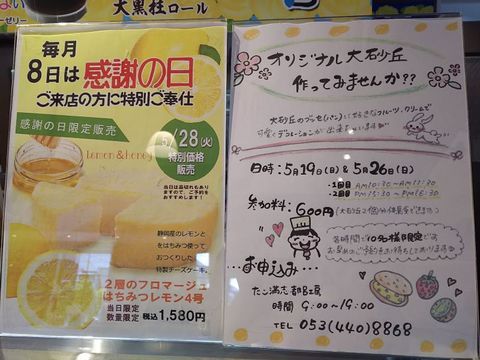 大黒柱ロール
毎月
8日は感謝の日
ご来店の方に特別ご奉仕
感謝の日限定販売
5/28(火)
特別価格
販売
Lemon & honey
当日は品切れもあり
ますので、ご予約を
おすすめします!
静岡産のレモンと
はちみつ使って
おつくりした
特製チーズケーキ。
2層のフロマージュ
はちみつレモン4号
当日限定
数量限定 税込1,580円
オリジナル大砂丘
作ってみませんか??
大砂丘のブッセ(パン)に好きなフルーツ、クリームで
可愛くデコレーションが出来ちゃいます
日時:5月19日(日)&5月26日(日)
・1回目 AM10:30~AM11:30
・2回目 PM15:30~PM16:30
参加料:600円(大砂丘2個分体験できます)
各時間で10名様限定です
お申込み...
たこ満志都呂店
時間 9:00~19:00
TEL 053(440)8868